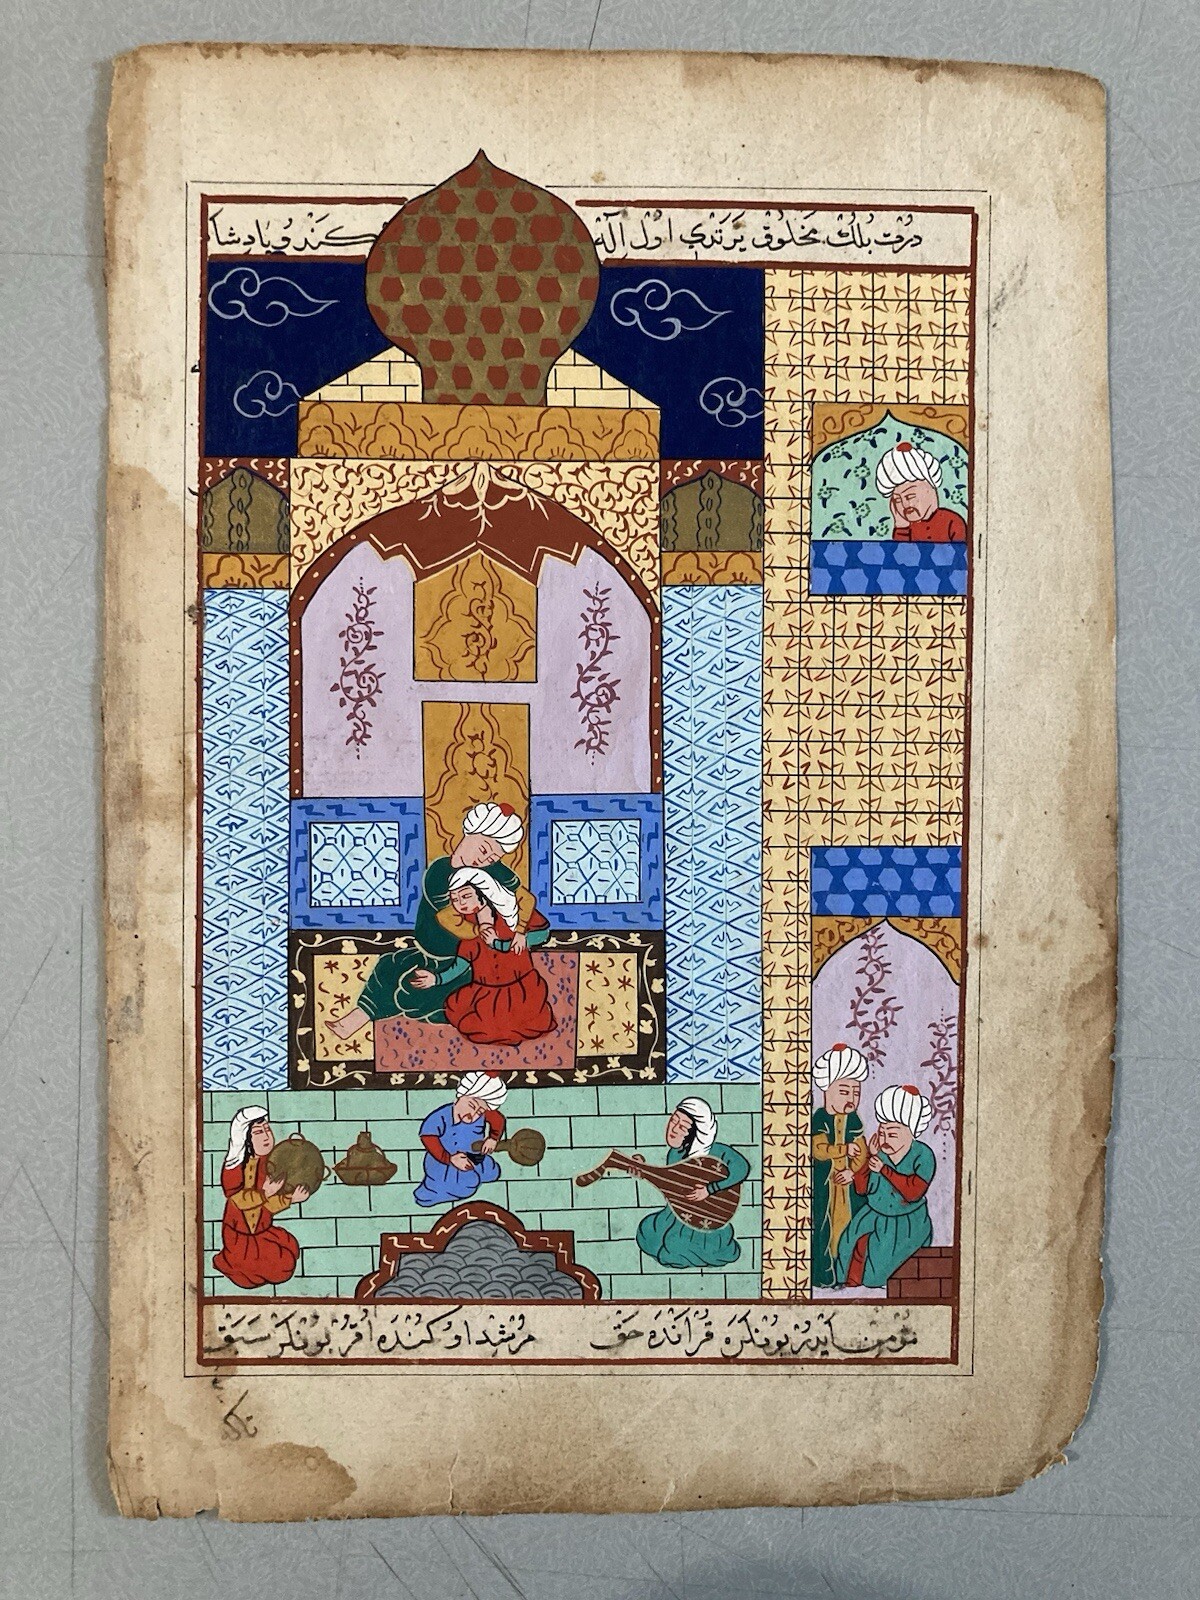 درت بلك مخلوق يَرَتدي اول اله كَندو پادشا
مؤمن ايدر بونكره قرانده حق مرشد اوكنده اقر بونكز سبق
تاكه